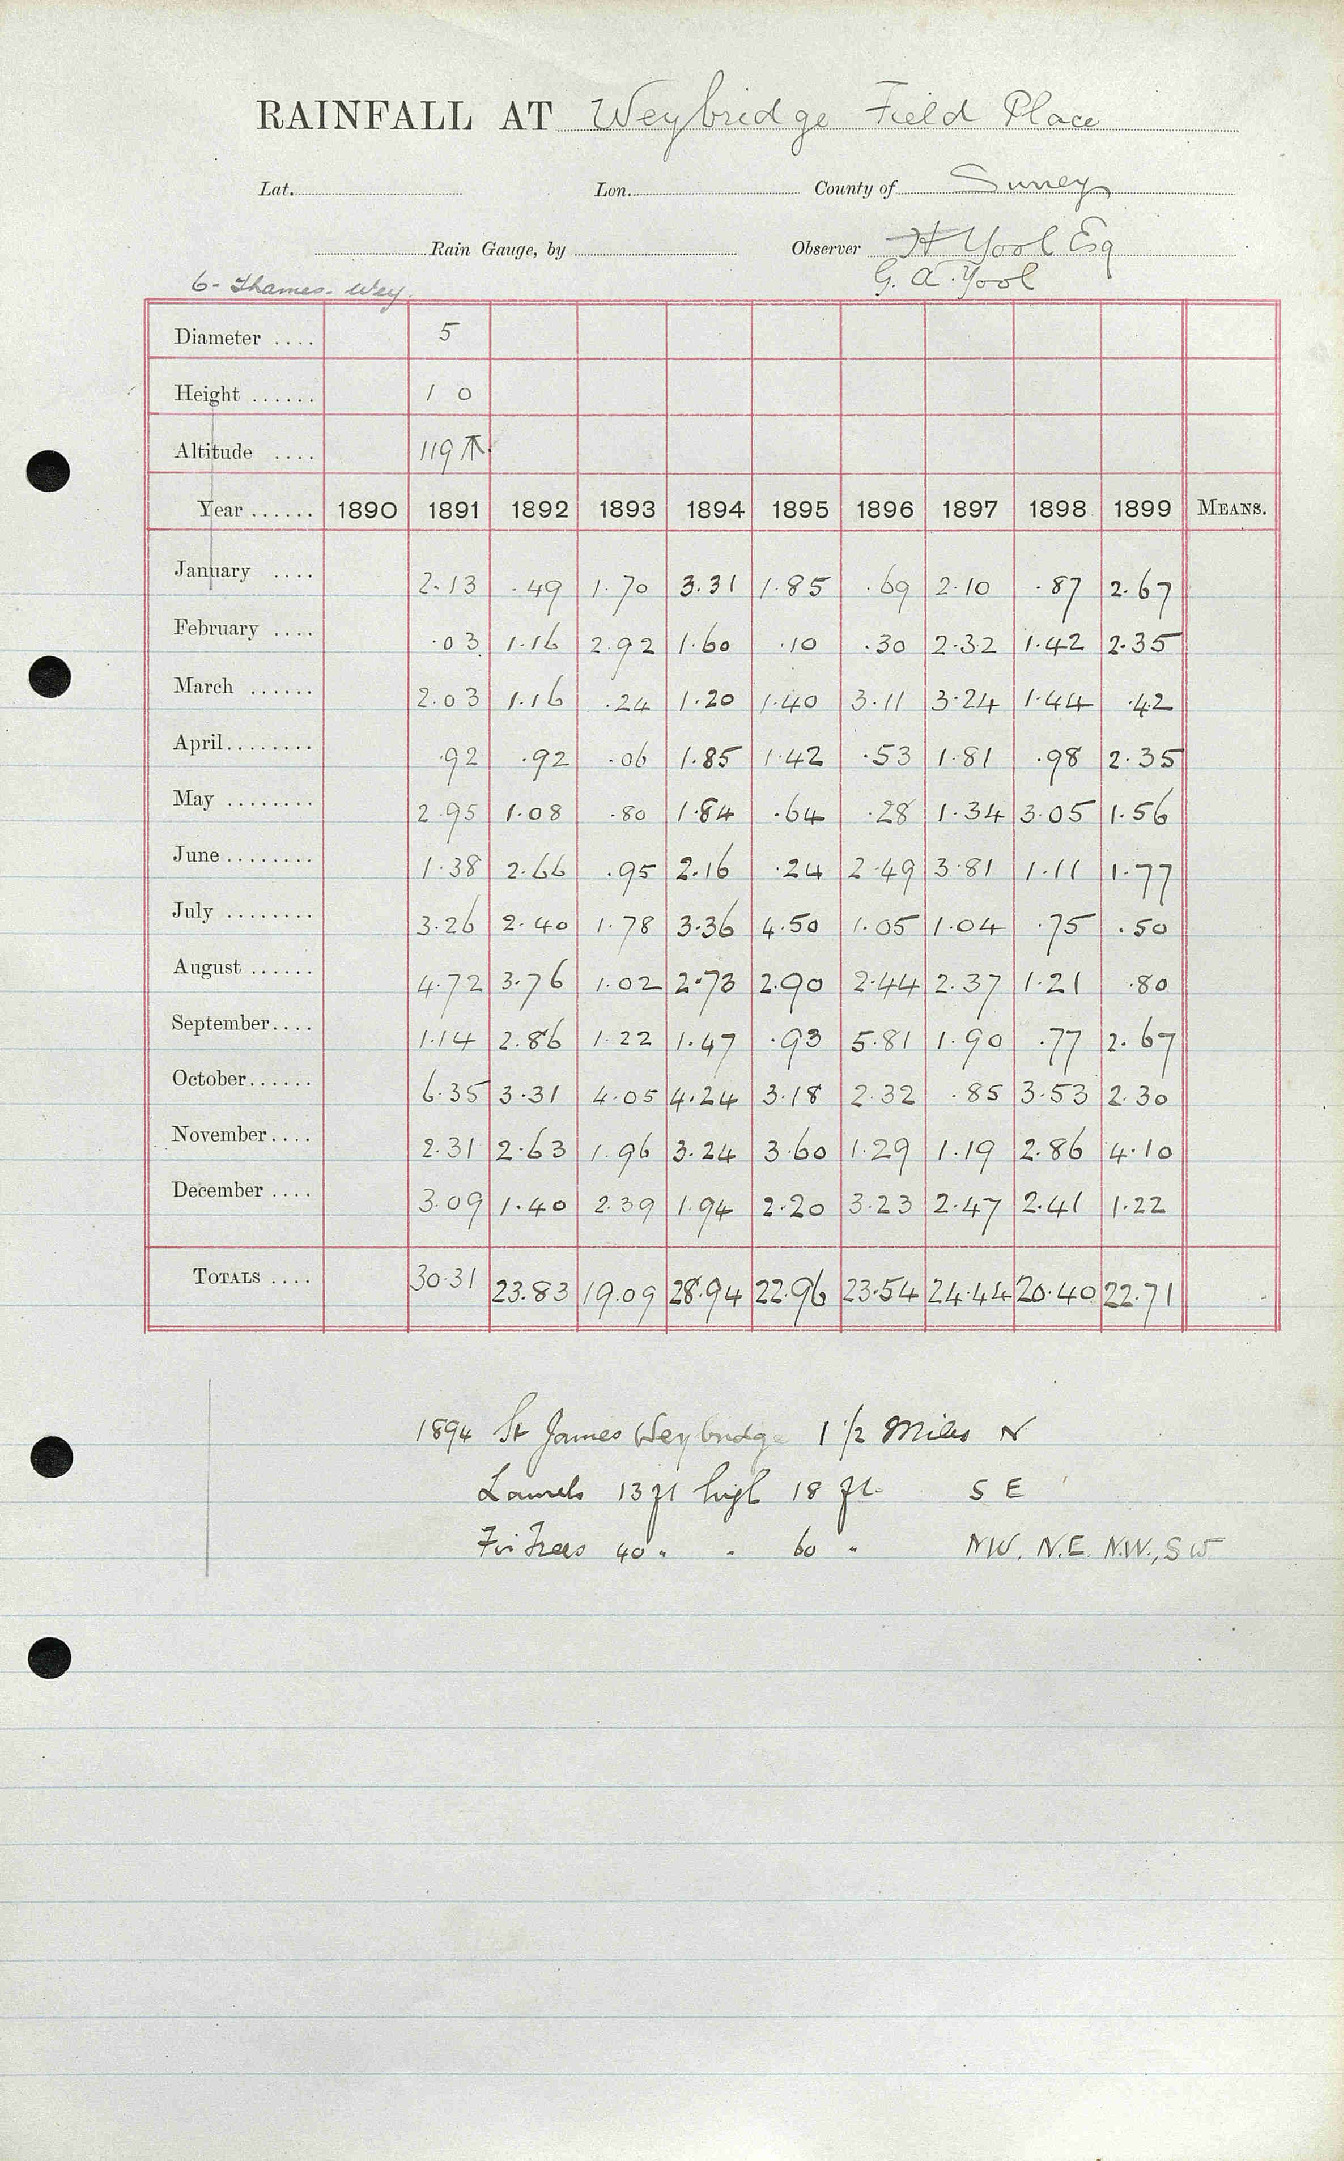 RAINFALL AT Weybridge Field Place
Lat. Lon. County of Surrey
Rain Gauge, by Observer H Yool Esq
G. A. Yool
6 - Thames - Wey.
Diameter .... 5
Height ...... 1 0
Altitude .... 119 ⊼
Year ...... 1890 1891 1892 1893 1894 1895 1896 1897 1898 1899 MEANS.
January .... 2.13 .49 1.70 3.31 1.85 .69 2.10 .87 2.67
February .... .03 1.16 2.92 1.60 .10 .30 2.32 1.42 2.35
March ...... 2.03 1.16 .24 1.20 1.40 3.11 3.24 1.44 .42
April........ .92 .92 .06 1.85 1.42 .53 1.81 .98 2.35
May ........ 2.95 1.08 .80 1.84 .64 .28 1.34 3.05 1.56
June........ 1.38 2.66 .95 2.16 .24 2.49 3.81 1.11 1.77
July ........ 3.26 2.40 1.78 3.36 4.50 1.05 1.04 .75 .50
August ...... 4.72 3.76 1.02 2.73 2.90 2.44 2.37 1.21 .80
September.... 1.14 2.86 1.22 1.47 .93 5.81 1.90 .77 2.67
October...... 6.35 3.31 4.05 4.24 3.18 2.32 .85 3.53 2.30
November.... 2.31 2.63 1.96 3.24 3.60 1.29 1.19 2.86 4.10
December .... 3.09 1.40 2.39 1.94 2.20 3.23 2.47 2.41 1.22
TOTALS .... 30.31 23.83 19.09 28.94 22.96 23.54 24.44 20.40 22.71
1894 St James Weybridge 1 1/2 Miles N
Laurels 13 ft high 18 ft. S E
Fir Trees 40 " " 60 " NW. N.E. N.W., SW